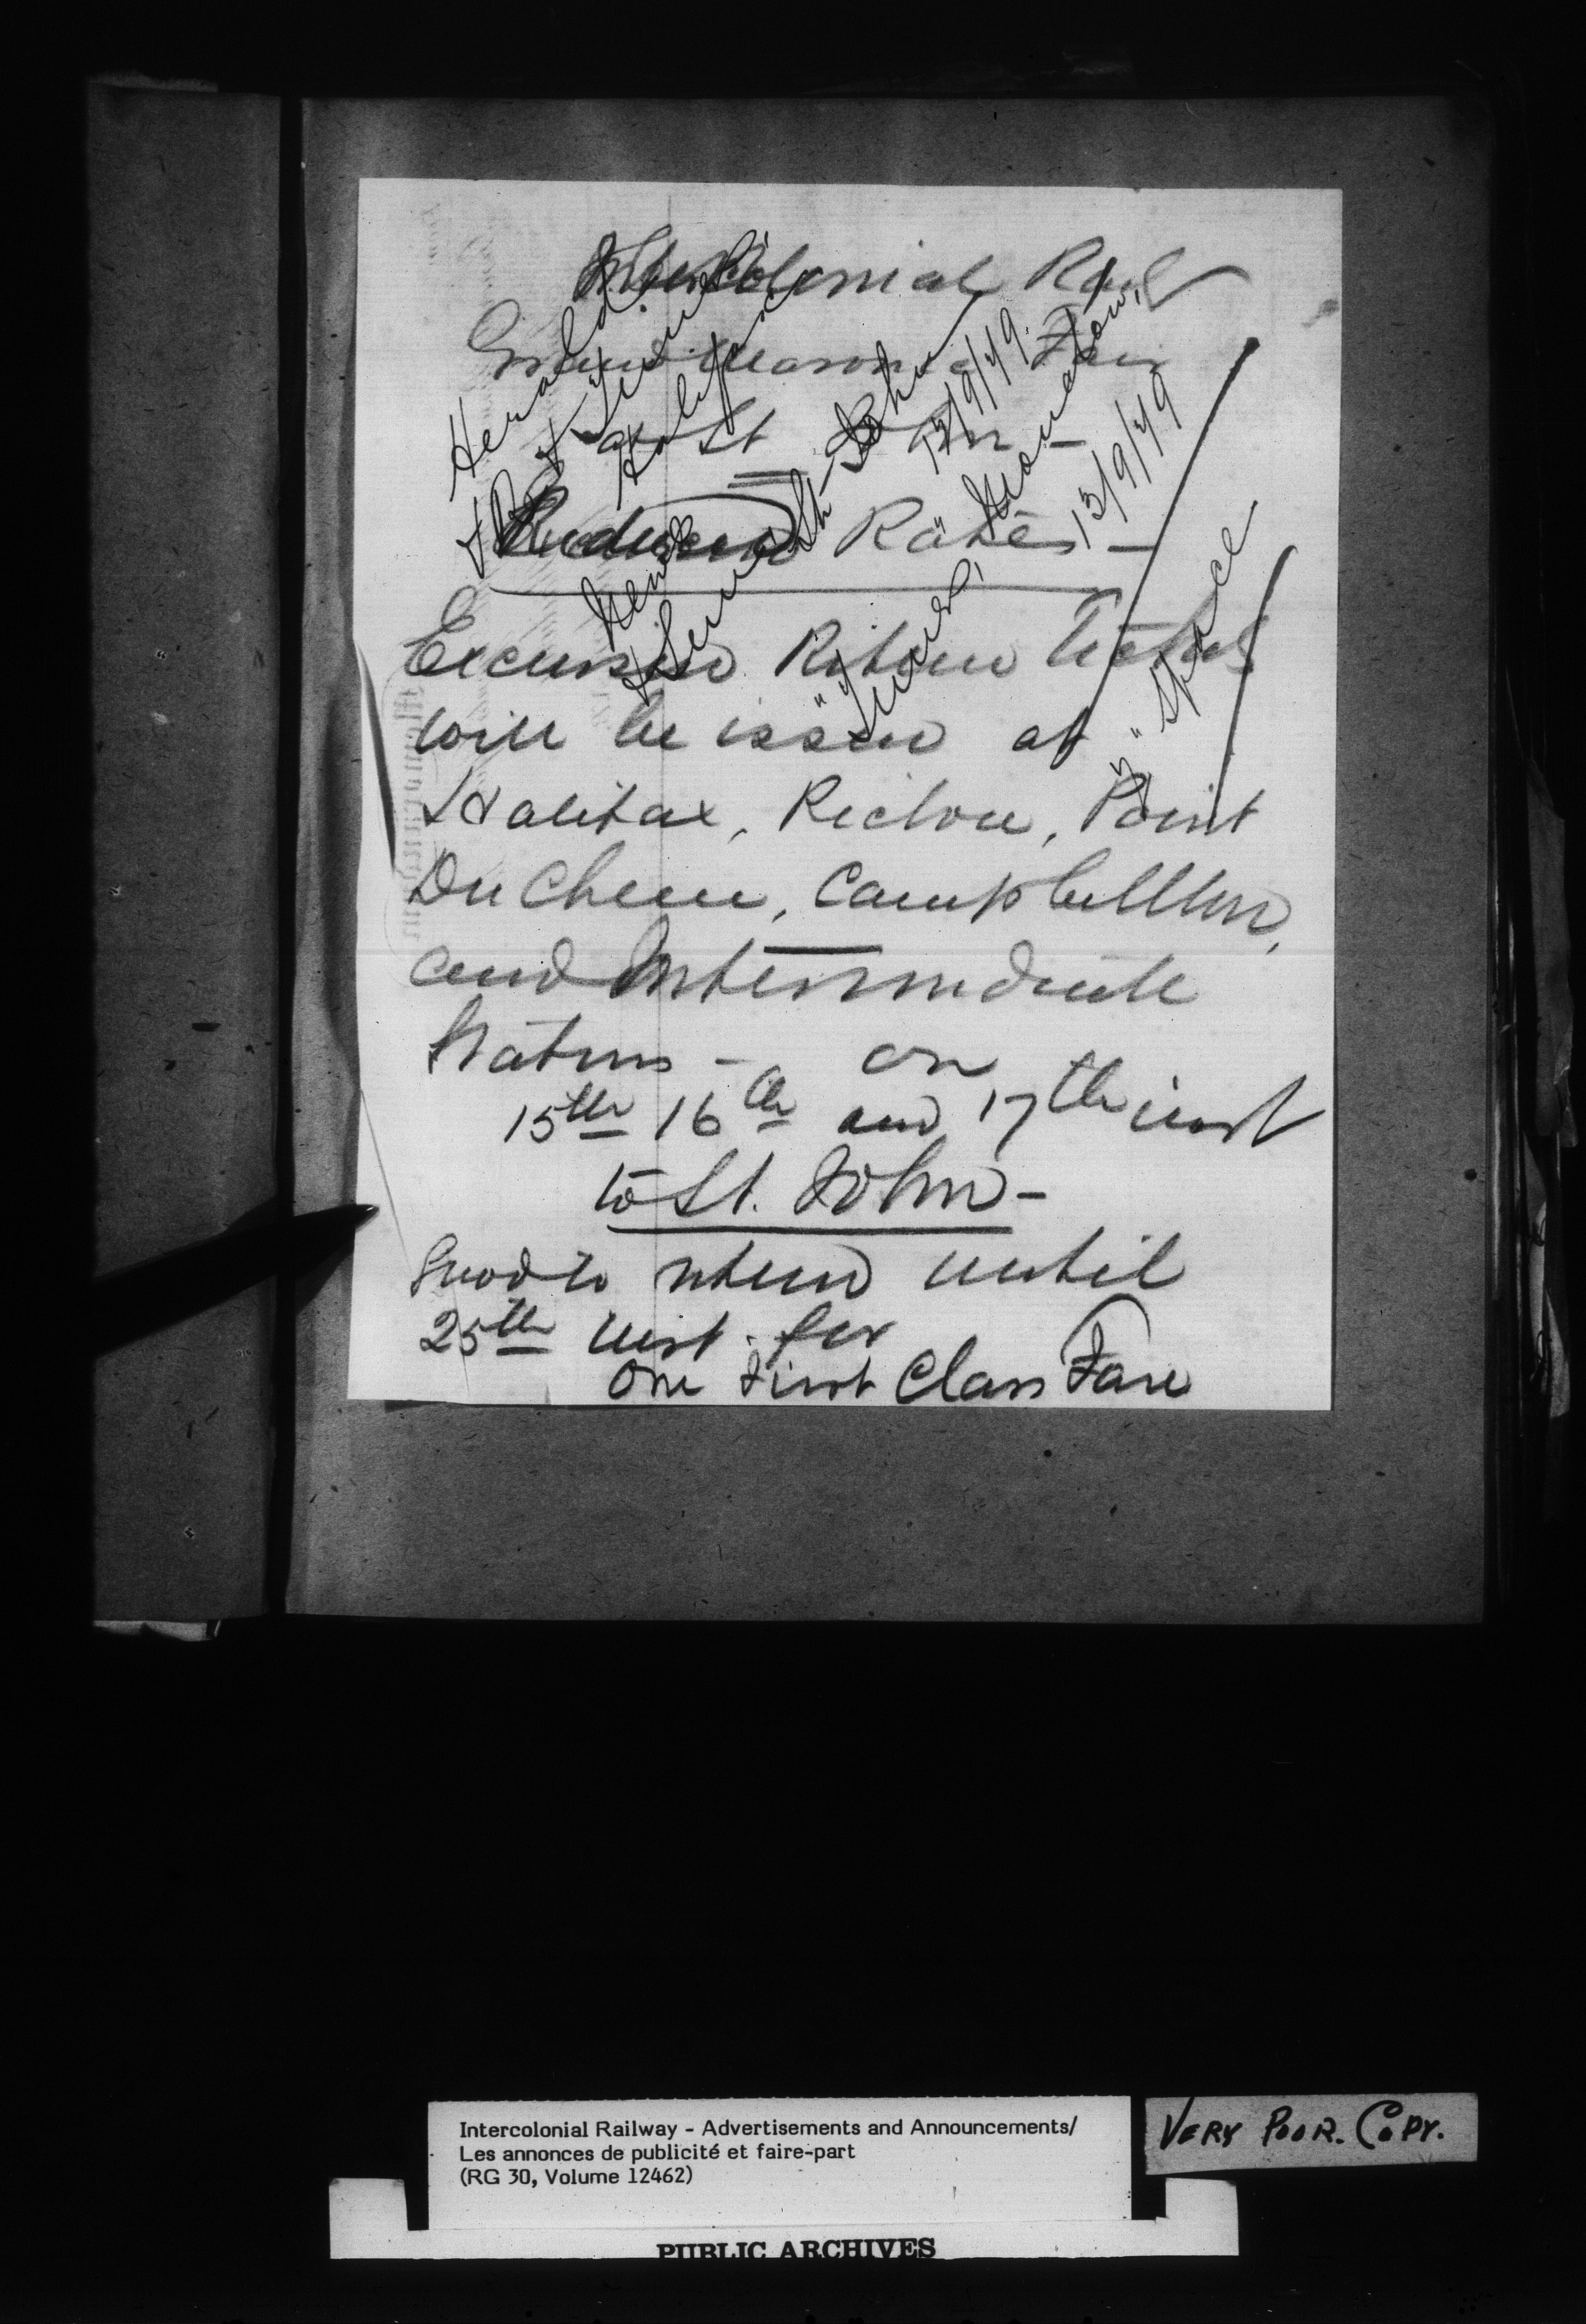 Intercolonial Rail
Grand Masonic Fair
at St John -
Reduced Rates -
Herald
Halifax
News
St John
13/9/79
Times, Moncton,
13/9/79
4" Space
Excursion Return Tickets
will be issued at
Halifax, Pictou, Point
Du Chene, Campbellton,
and Intermediate
Stations - on
15th 16th and 17th inst
to St. John -
Good to return until
25th inst. for
One First Class Fare
Intercolonial Railway - Advertisements and Announcements/
Les annonces de publicité et faire-part
(RG 30, Volume 12462)
VERY POOR. COPY.
PUBLIC ARCHIVES